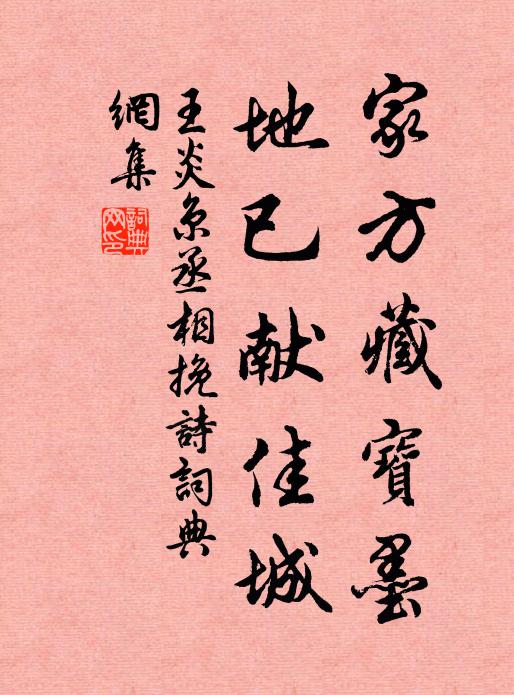 家方藏寶墨
地已献佳城
王炎京丞相挽詩詞典
網集
詞典網印